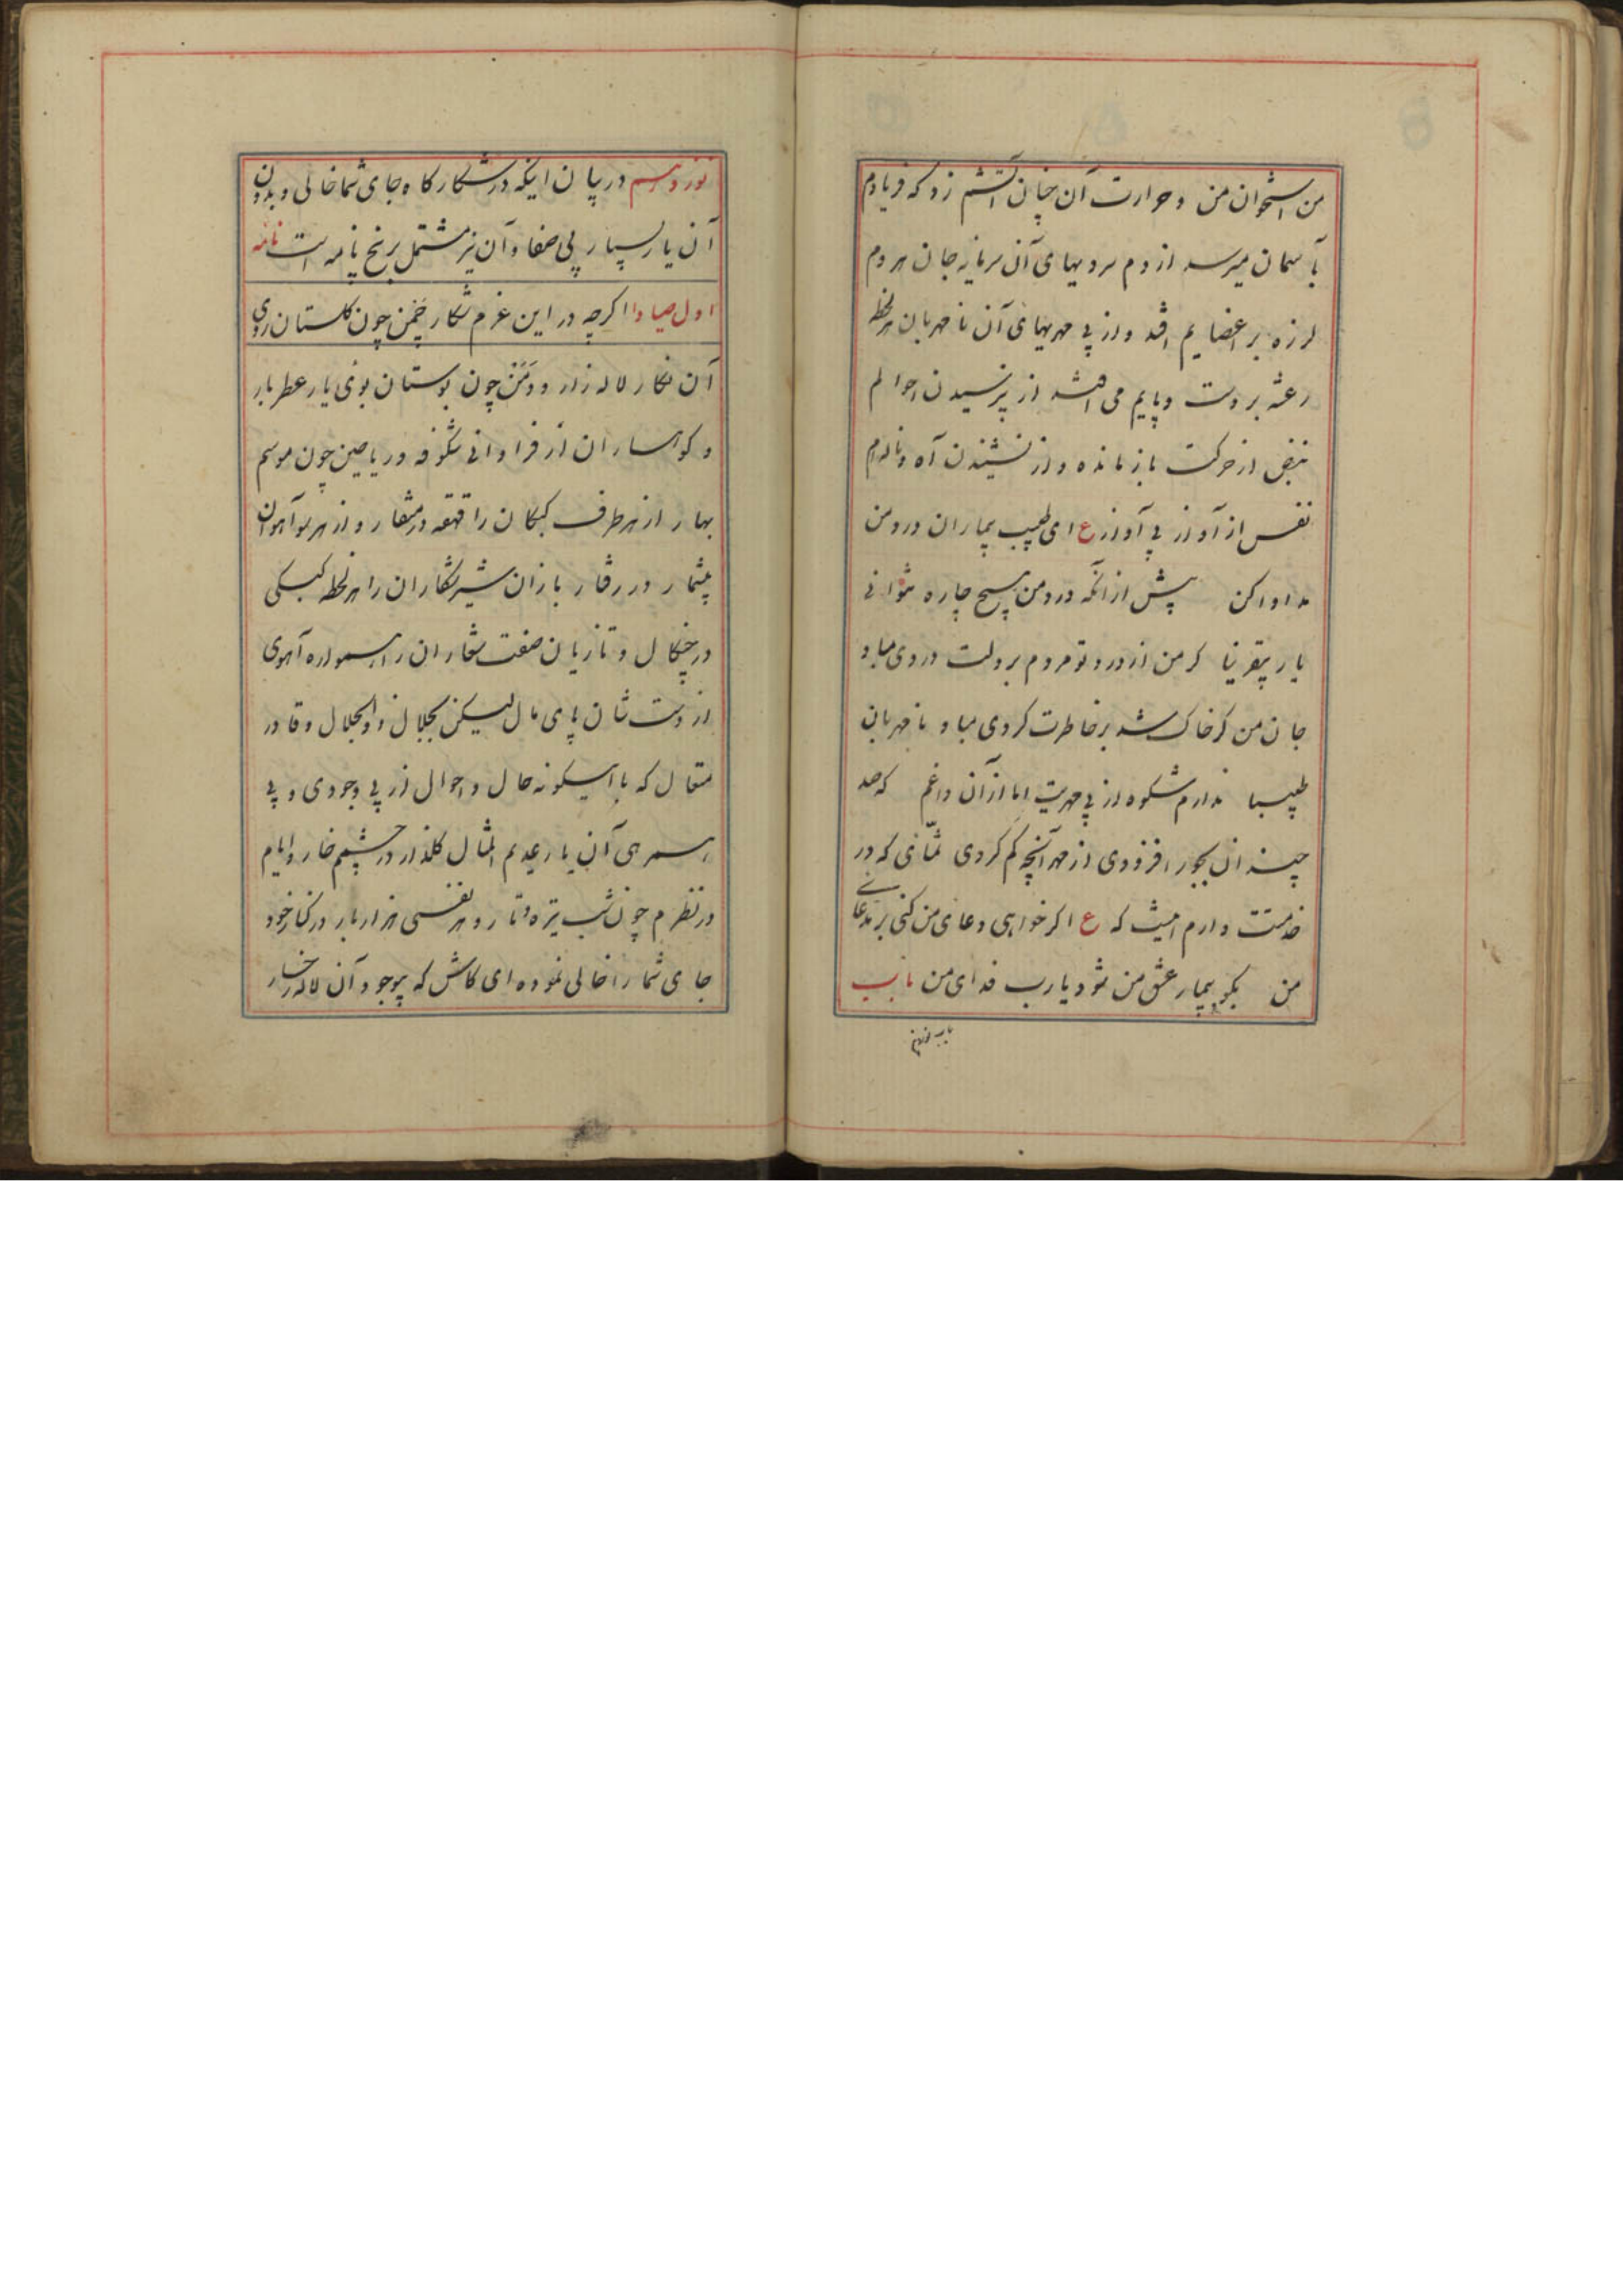 من استخوان من و حرارت آن چنان آتشم زد که فریادم
بآسمان میرسد از دم سردیهای آن سرمایه جان هردم
لرزه بر اعضایم افتد و از بی مهریهای آن نامهربان هر لحظه
رعشه بر دست و پایم می افتد از پرسیدن احوالم
نبض از حرکت باز مانده و از نشنیدن آه و ناله ام
نفس از آواز بی آواز ع ای طبیب بیماران درد من
مداوا کن پیش از آنکه درد من هیچ چاره نتوانی
یار بیقرینا گر من از درد تو مردم بر دلت دردی مباد
جان من گر خاک شد بر خاطرت گردی مباد نامهربان
طبیبا ندارم شکوه از بی مهریت اما از آن داغم که صد
چندان بجور افزودی از مهر آنچه کم کردی تمنائی که در
خدمتت دارم اینست که ع اگر خواهی دعای من کنی بر مدعای
من بگو بیمار عشق من شود یارب فدای من باب
باب نوزدهم
نوزدهم در بیان اینکه در شکارگاه جای شما خالی و بدون
آن یار بسیار بی صفا و آن نیز مشتمل بر پنج نامه است نامه
اول صیادا اگرچه در این عزم شکار چمن چون گلستان روی
آن نگار لاله زار و دمن چون بوستان بوی یار عطربار
و کوهساران از فراوانی شگوفه و ریاحین چون موسم
بهار از هر طرف کبکان را قهقهه در منقار و از هر سو آهوان
بیشمار در رفتار بازان شیر شکاران را هر لحظه کبکی
در چنگال و تازیان صفت شعاران را همواره آهوی
از دستشان پای مال لیکن بجلال ذوالجلال و قادر
متعال که با اینگونه حال و احوال از بی وجودی و بی
همرهی آن یار عدیم المثال گلزار در چشمم خار و ایام
در نظرم چون شب تیره و تار و هر نفسی هزار بار در کنار خود
جای شما را خالی نموده ای کاش که بوجود آن لاله رخسار